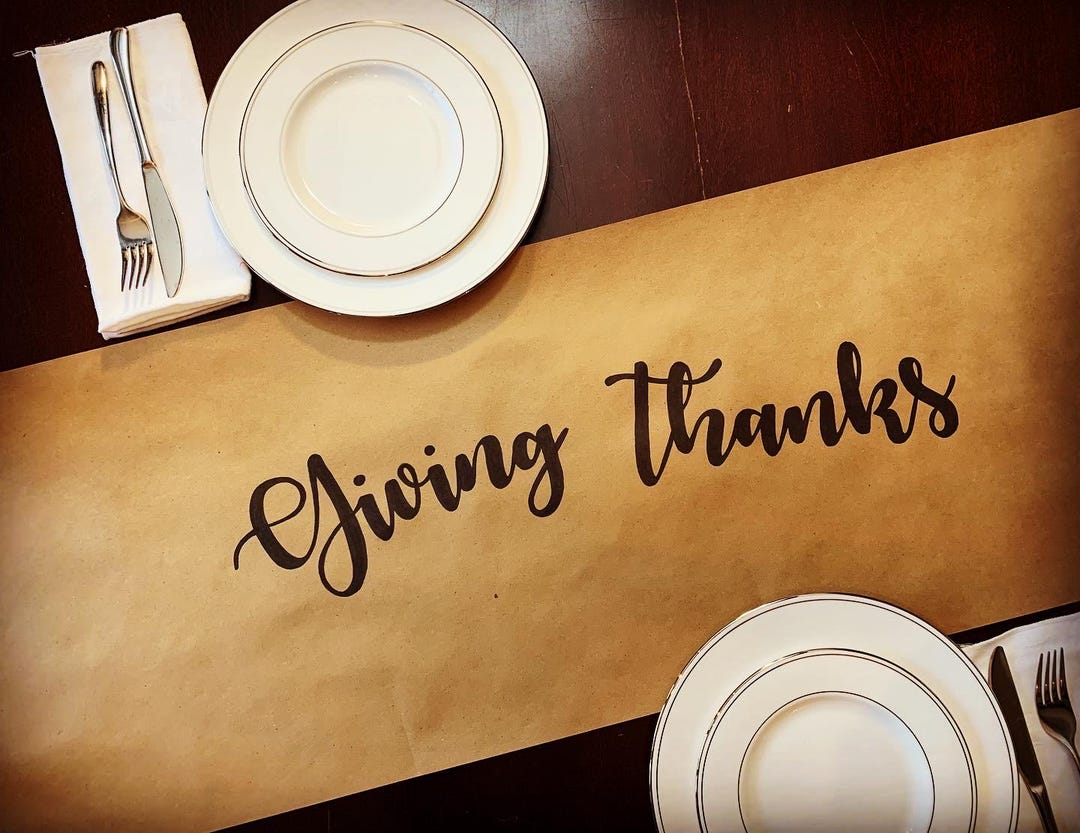 Giving thanks